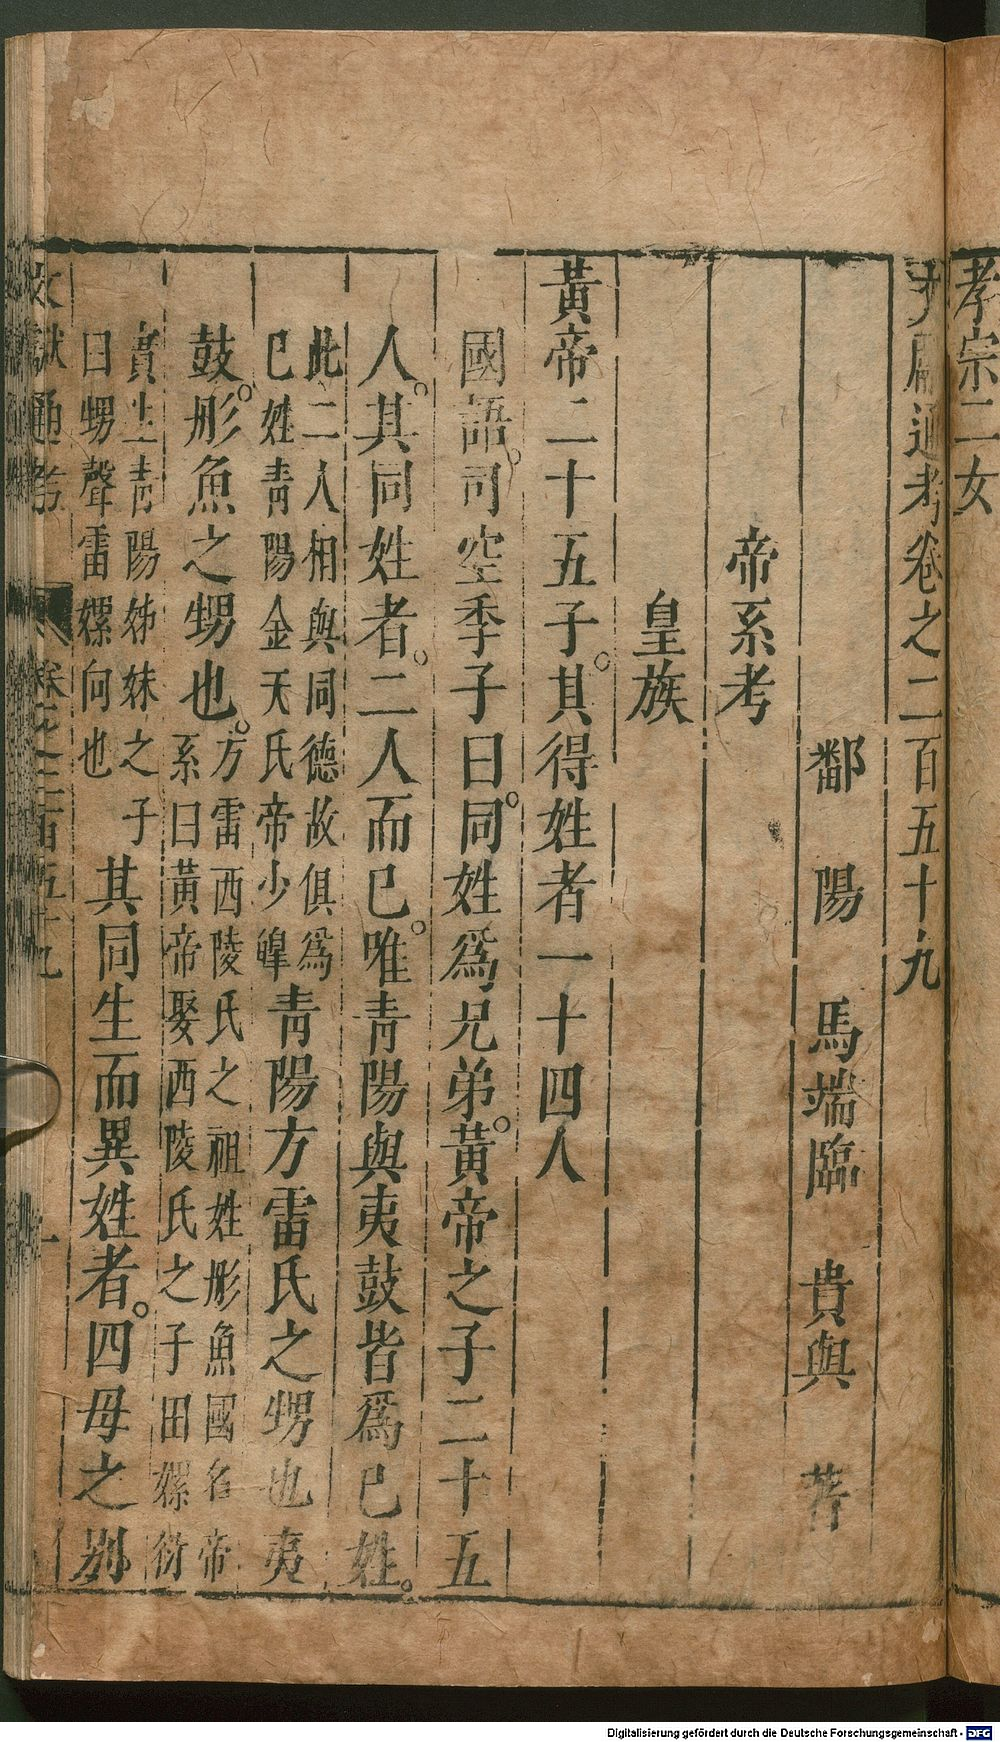 孝宗二女
文獻通考卷之二百五十九
鄱陽　馬端臨　貴與　著
帝系考
皇族
黃帝二十五子。其得姓者一十四人
國語。司空季子曰。同姓為兄弟。黃帝之子二十五
人。其同姓者。二人而已。唯青陽與夷鼓皆為己姓。
此二人相與同德故俱為
已姓青陽金天氏帝少皞
青陽方雷氏之甥也夷
鼓。彤魚之甥也。
方雷西陵氏之祖姓彤魚國名帝
系曰黃帝娶西陵氏之子田嫘衍
實生青陽姊妹之子
曰甥聲雷嫘向也
其同生而異姓者。四母之別
文獻通考　卷之二百五十九　一
Digitalisierung gefördert durch die Deutsche Forschungsgemeinschaft - DFG